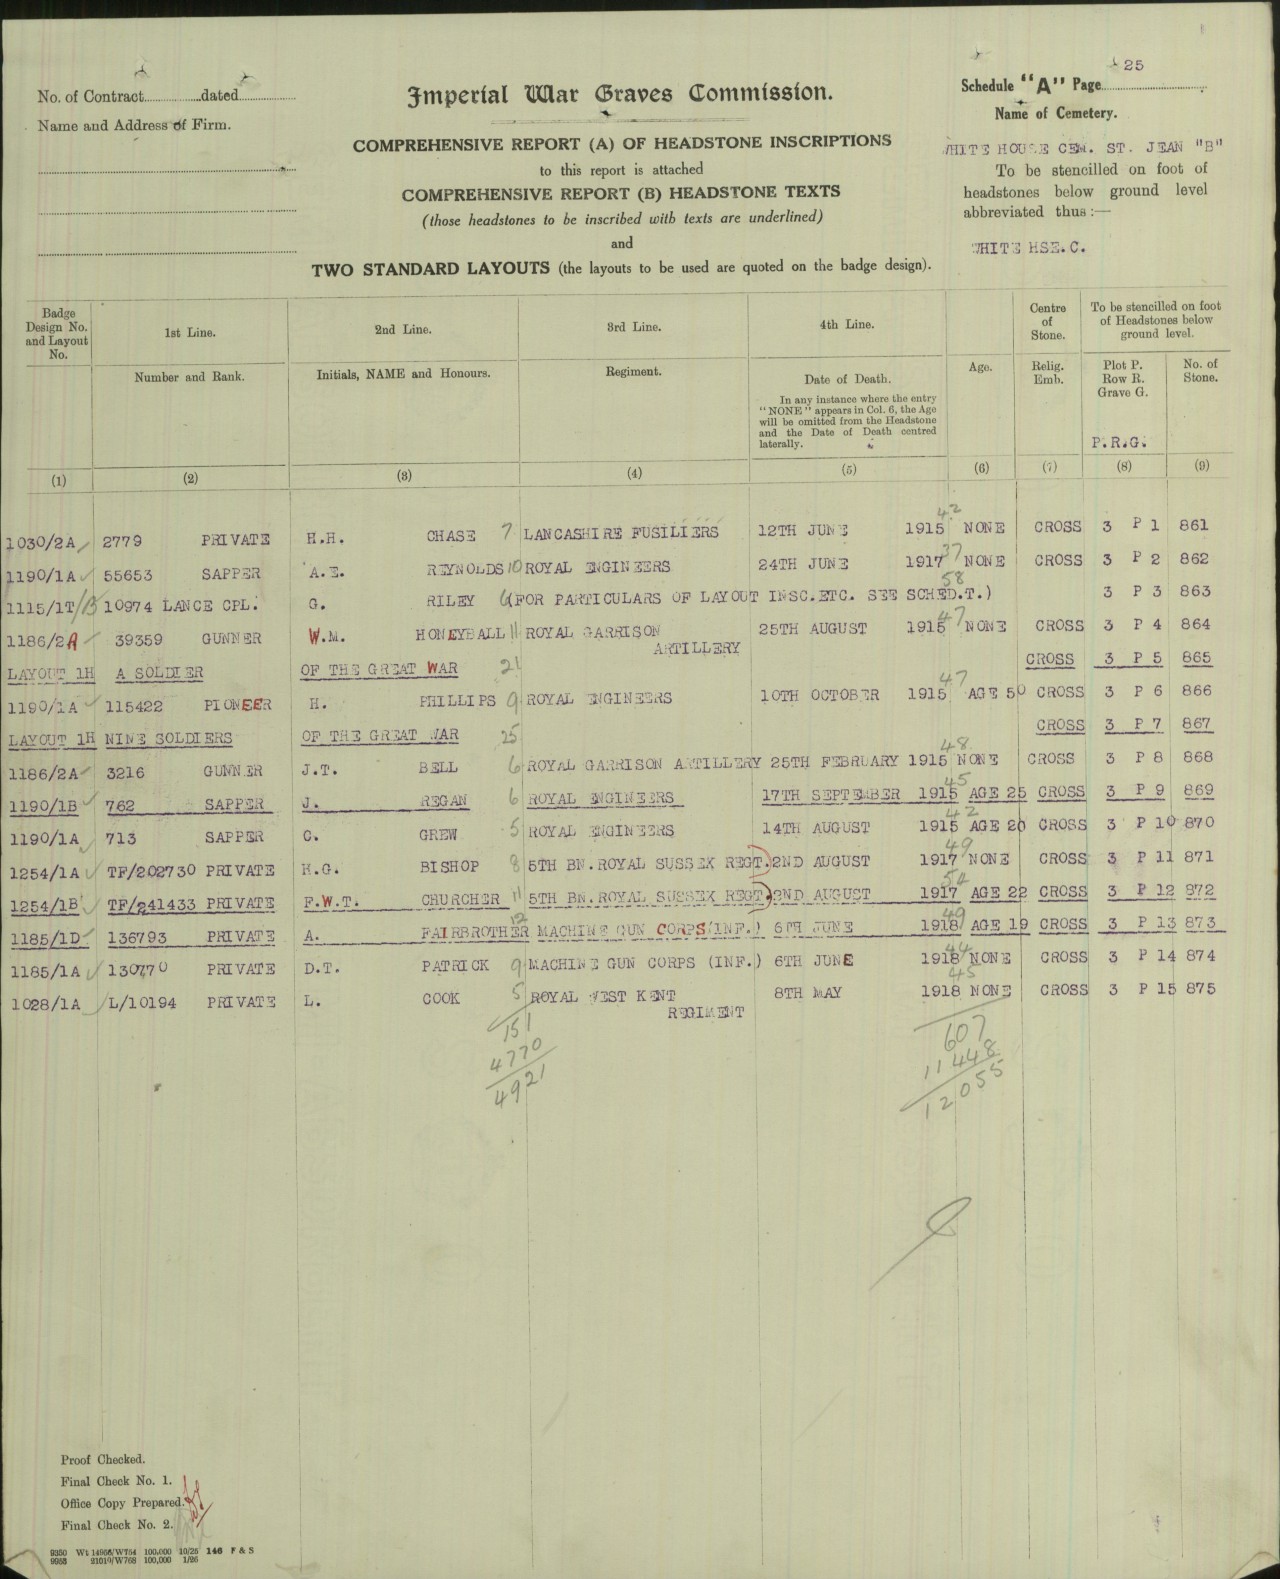 25
No. of Contract..................dated..................
Name and Address of Firm.
Imperial War Graves Commission.
COMPREHENSIVE REPORT (A) OF HEADSTONE INSCRIPTIONS
to this report is attached
COMPREHENSIVE REPORT (B) HEADSTONE TEXTS
(those headstones to be inscribed with texts are underlined)
and
TWO STANDARD LAYOUTS (the layouts to be used are quoted on the badge design).
Schedule "A" Page
Name of Cemetery.
WHITE HOUSE CEM. ST. JEAN "B"
To be stencilled on foot of
headstones below ground level
abbreviated thus :—
WHITE HSE.C.
Badge Design No. and Layout No.
1st Line.
Number and Rank.
2nd Line.
Initials, NAME and Honours.
3rd Line.
Regiment.
4th Line.
Date of Death.
In any instance where the entry
"NONE" appears in Col. 6, the Age
will be omitted from the Headstone
and the Date of Death centred
laterally.
Age.
Centre of Stone.
Relig. Emb.
To be stencilled on foot
of Headstones below
ground level.
Plot P.
Row R.
Grave G.
P.R.G.
No. of Stone.
(1) (2) (3) (4) (5) (6) (7) (8) (9)
1030/2A 2779 PRIVATE H.H. CHASE 7 LANCASHIRE FUSILIERS 12TH JUNE 1915 42 NONE CROSS 3 P 1 861
1190/1A 55653 SAPPER A.E. REYNOLDS 10 ROYAL ENGINEERS 24TH JUNE 1917 37 NONE CROSS 3 P 2 862
1115/1T/B 10974 LANCE CPL. G. RILEY 6 (FOR PARTICULARS OF LAYOUT INSC.ETC. SEE SCHED.T.) 58 3 P 3 863
1186/2A 39359 GUNNER W.M. HONEYBALL 11 ROYAL GARRISON ARTILLERY 25TH AUGUST 1915 47 NONE CROSS 3 P 4 864
LAYOUT 1H A SOLDIER OF THE GREAT WAR 21 CROSS 3 P 5 865
1190/1A 115422 PIONEER H. PHILLIPS 9 ROYAL ENGINEERS 10TH OCTOBER 1915 47 AGE 50 CROSS 3 P 6 866
LAYOUT 1H NINE SOLDIERS OF THE GREAT WAR 25 CROSS 3 P 7 867
1186/2A 3216 GUNNER J.T. BELL 6 ROYAL GARRISON ARTILLERY 25TH FEBRUARY 1915 48 NONE CROSS 3 P 8 868
1190/1B 762 SAPPER J. REGAN 6 ROYAL ENGINEERS 17TH SEPTEMBER 1915 45 AGE 25 CROSS 3 P 9 869
1190/1A 713 SAPPER C. GREW 5 ROYAL ENGINEERS 14TH AUGUST 1915 42 AGE 20 CROSS 3 P 10 870
1254/1A TF/202730 PRIVATE H.G. BISHOP 8 5TH BN.ROYAL SUSSEX REGT. 2ND AUGUST 1917 49 NONE CROSS 3 P 11 871
1254/1B TF/241433 PRIVATE F.W.T. CHURCHER 11 5TH BN.ROYAL SUSSEX REGT. 2ND AUGUST 1917 54 AGE 22 CROSS 3 P 12 872
1185/1D 136793 PRIVATE A. FAIRBROTHER 12 MACHINE GUN CORPS(INF.) 6TH JUNE 1918 49 AGE 19 CROSS 3 P 13 873
1185/1A 130770 PRIVATE D.T. PATRICK 9 MACHINE GUN CORPS (INF.) 6TH JUNE 1918 44 NONE CROSS 3 P 14 874
1028/1A L/10194 PRIVATE L. COOK 5 ROYAL WEST KENT REGIMENT 8TH MAY 1918 45 NONE CROSS 3 P 15 875
151
4770
4921
607
11448
12055
Proof Checked.
Final Check No. 1.
Office Copy Prepared.
Final Check No. 2.
9350 Wt 14966/W754 100,000 10/25 146 F & S
9953 21019/W768 100,000 1/26